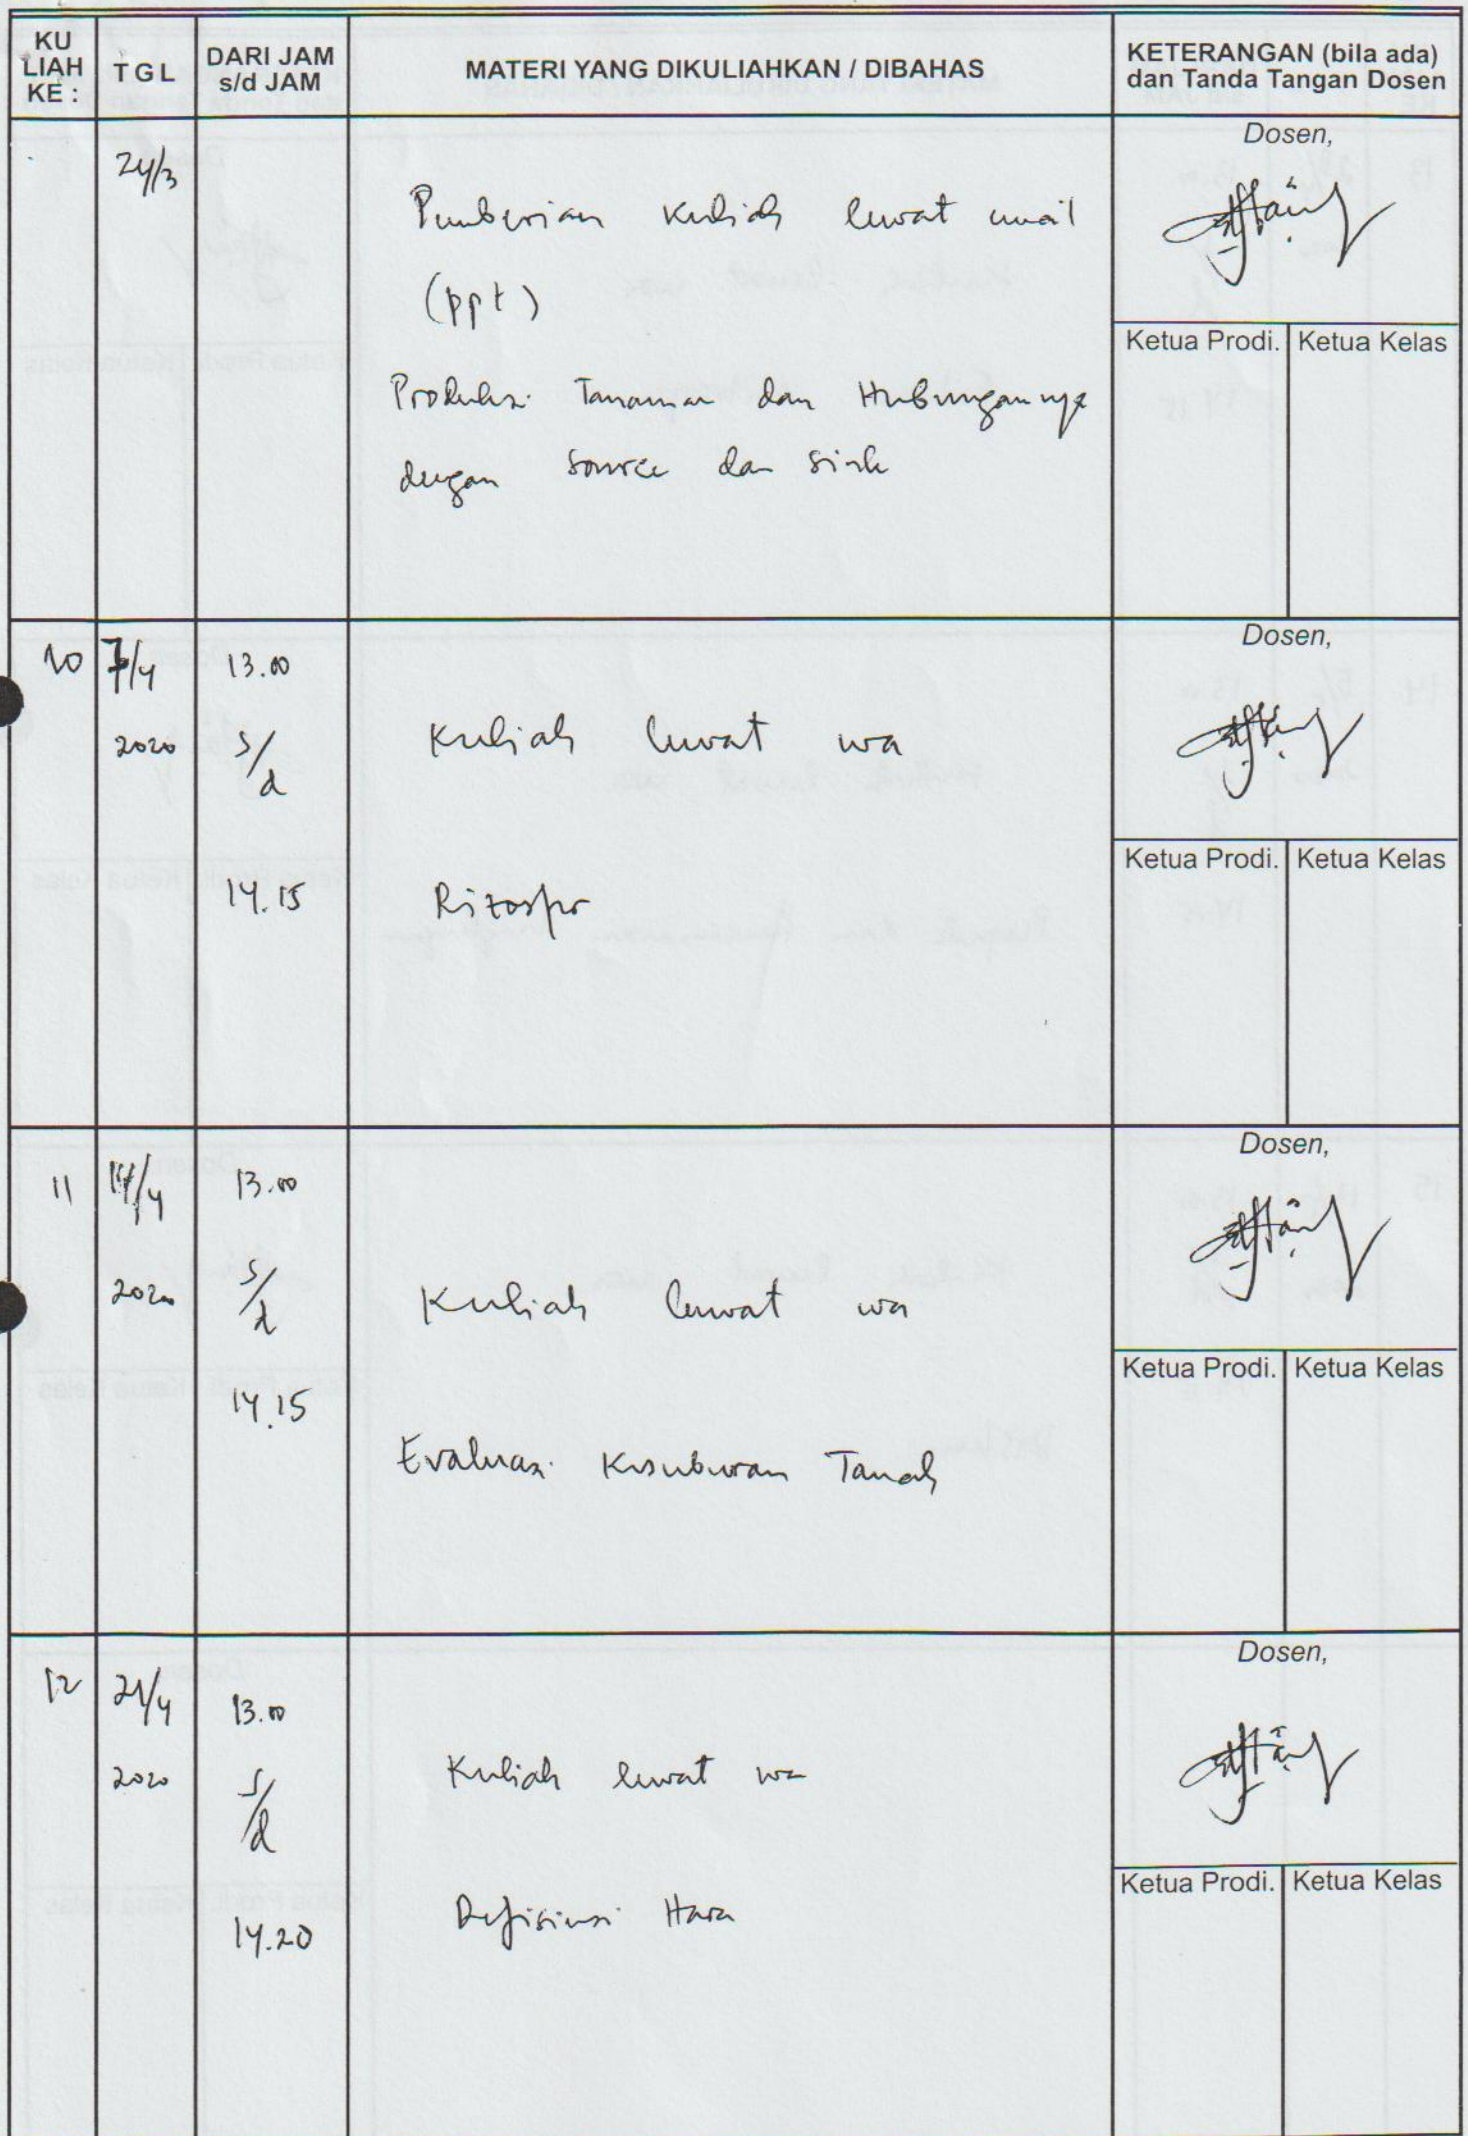 KU
LIAH
KE :
TGL
DARI JAM
s/d JAM
MATERI YANG DIKULIAHKAN / DIBAHAS
KETERANGAN (bila ada)
dan Tanda Tangan Dosen
24/3
Pemberian Kuliah lewat email
(ppt)
Produksi Tanaman dan Hubungannya
dengan source dan sink
Dosen,
Ketua Prodi. Ketua Kelas
10 7/4 13.00
2020 s/d
14.15
Kuliah lewat wa
Rizosfer
Dosen,
Ketua Prodi. Ketua Kelas
11 14/4 13.00
2020 s/d
14.15
Kuliah lewat wa
Evaluasi Kesuburan Tanah
Dosen,
Ketua Prodi. Ketua Kelas
12 21/4 13.00
2020 s/d
14.20
Kuliah lewat wa
Defisiensi Hara
Dosen,
Ketua Prodi. Ketua Kelas